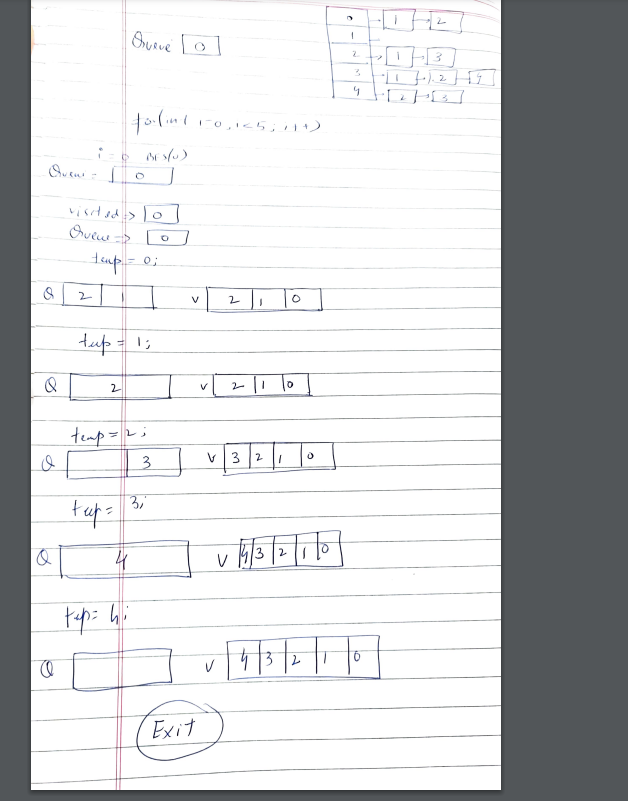 Queue 0
0 1 2
1
2 1 3
3 1 2 4
4 2 3
for(int i=0, i<5; i++)
i=0 BFS(0)
Queue = 0
visited => 0
Queue => 0
temp = 0;
Q 2 1 V 2 1 0
temp = 1;
Q 2 V 2 1 0
temp = 2;
Q 3 V 3 2 1 0
temp = 3;
Q 4 V 4 3 2 1 0
temp = 4;
Q V 4 3 2 1 0
Exit